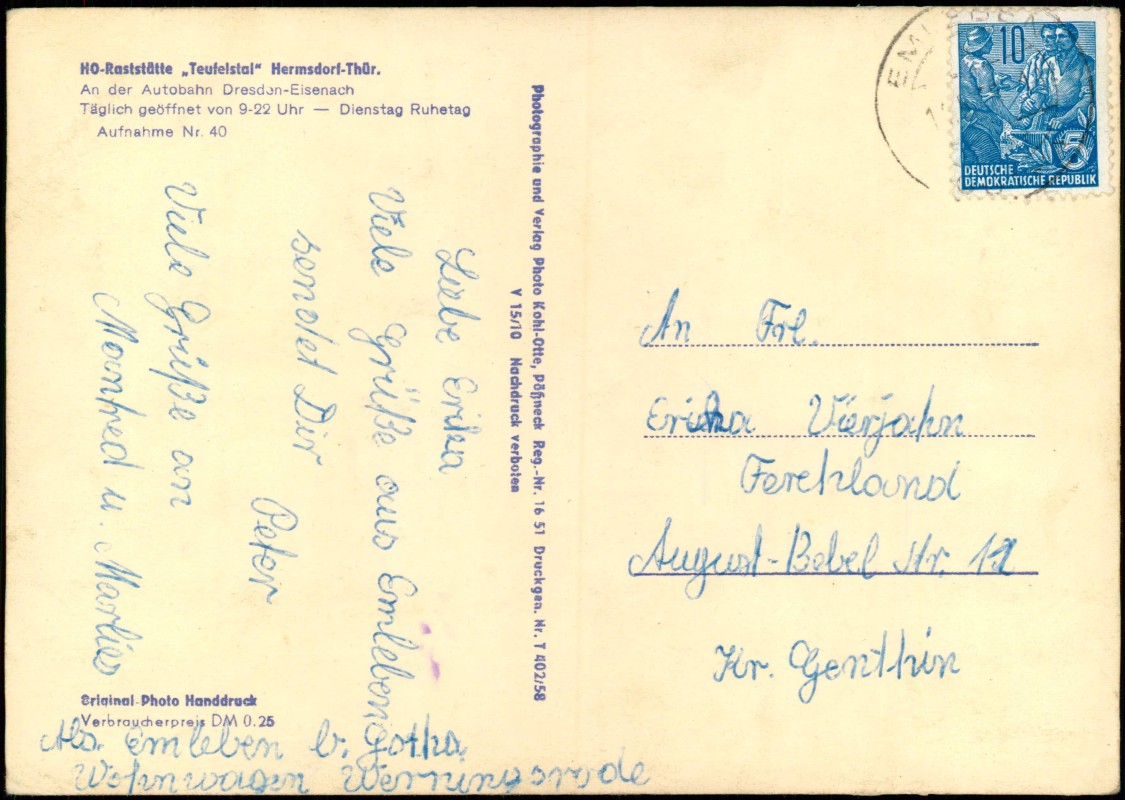 HO-Raststätte „Teufelstal" Hermsdorf-Thür.
An der Autobahn Dresden-Eisenach
Täglich geöffnet von 9-22 Uhr — Dienstag Ruhetag
Aufnahme Nr. 40
Liebe Erika
Viele Grüße aus Emleben
sendet Dir
Peter
Viele Grüße an
Manfred u. Marlies
Original-Photo Handdruck
Verbraucherpreis DM 0.25
Abs. Emleben b. Gotha
Wohnwagen Werningsrode
Photographie und Verlag Photo Kohl-Otte, Pößneck Reg.-Nr. 16 51 Druckgen. Nr. T 402/58
V 15/10 Nachdruck verboten
EMLEBEN
10
5
DEUTSCHE
DEMOKRATISCHE REPUBLIK
An Frl.
Erika Vierjahn
Ferchland
August-Bebel Str. 12
Kr. Genthin